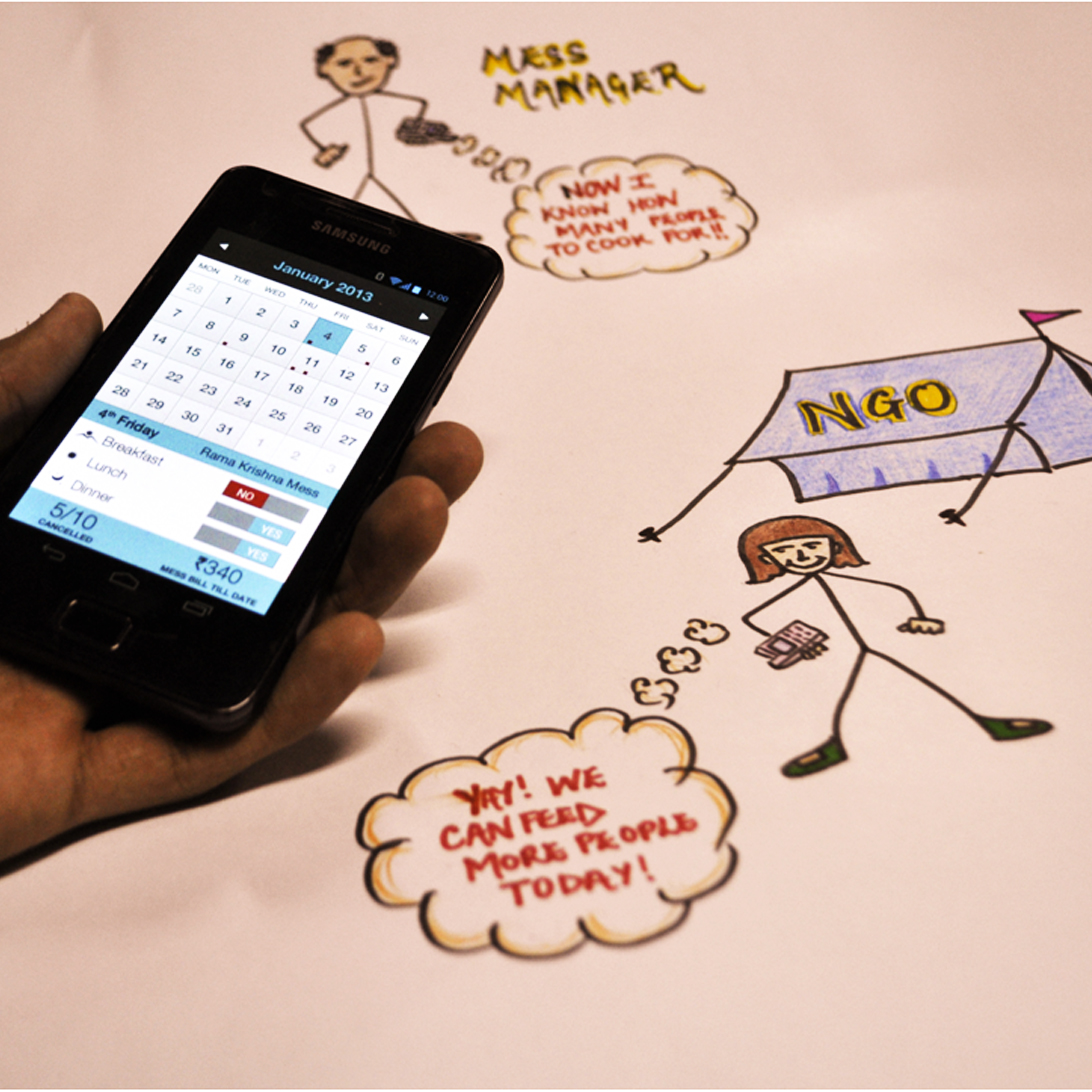 MESS
MANAGER
NOW I
KNOW HOW
MANY PEOPLE
TO COOK FOR!!
SAMSUNG
12:00
January 2013
MON TUE WED THU FRI SAT SUN
28 1 2 3 4 5 6
7 8 9 10 11 12 13
14 15 16 17 18 19 20
21 22 23 24 25 26 27
28 29 30 31 1 2 3
4th Friday Rama Krishna Mess
Breakfast NO
Lunch YES
Dinner YES
5/10 ₹340
CANCELLED MESS BILL TILL DATE
NGO
YAY! WE
CAN FEED
MORE PEOPLE
TODAY!